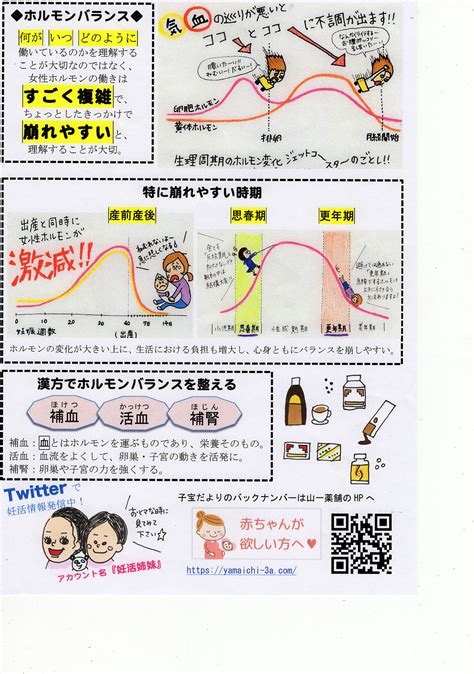 ◆ホルモンバランス◆
何が いつ どのように
働いているのかを理解する
ことが大切なのではなく、
女性ホルモンの働きは
すごく複雑で、
ちょっとしたきっかけで
崩れやすいと、
理解することが大切。
気 血の巡りが悪いと
ココとココに不調が出ます!!
卵胞ホルモン
黄体ホルモン
排卵
月経開始
生理周期のホルモン変化 ジェットコースターのごとし!!
特に崩れやすい時期
産前産後
出産と同時に
女性ホルモンが
激減!!
0 10 20 30 40
妊娠週数
(出産)
思春期
更年期
小児期
思春期
性成熟期
更年期
ホルモンの変化が大きい上に、生活における負担も増大し、心身ともにバランスを崩しやすい。
漢方でホルモンバランスを整える
ほけつ
補血
かっけつ
活血
ほじん
補腎
補血：血とはホルモンを運ぶものであり、栄養そのもの。
活血：血流をよくして、卵巣・子宮の動きを活発に。
補腎：卵巣や子宮の力を強くする。
Twitterで
妊活情報発信中！
おヒマな時に
見てみて
下さい☆
アカウント名『妊活姉妹』
子宝だよりのバックナンバーは山一薬舗のHPへ
赤ちゃんが
欲しい方へ♥
https://yamaichi-3a.com/